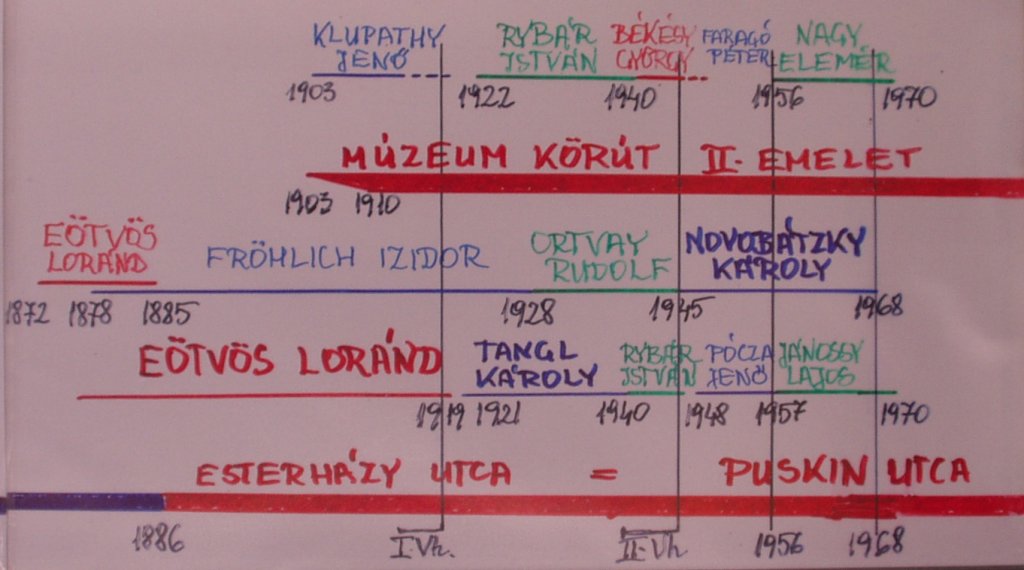 KLUPATHY JENŐ
RYBÁR ISTVÁN
BÉKÉSY GYÖRGY
FARAGÓ PÉTER
NAGY ELEMÉR
1903 1922 1940 1956 1970
MÚZEUM KÖRÚT II. EMELET
1903 1910
EÖTVÖS LORÁND
FRÖHLICH IZIDOR
ORTVAY RUDOLF
NOVOBÁTZKY KÁROLY
1872 1878 1885 1928 1945 1968
EÖTVÖS LORÁND
TANGL KÁROLY
RYBÁR ISTVÁN
PÓCZA JENŐ
JÁNOSSY LAJOS
1919 1921 1940 1948 1957 1970
ESTERHÁZY UTCA = PUSKIN UTCA
1886 I.Vh. II.Vh 1956 1968